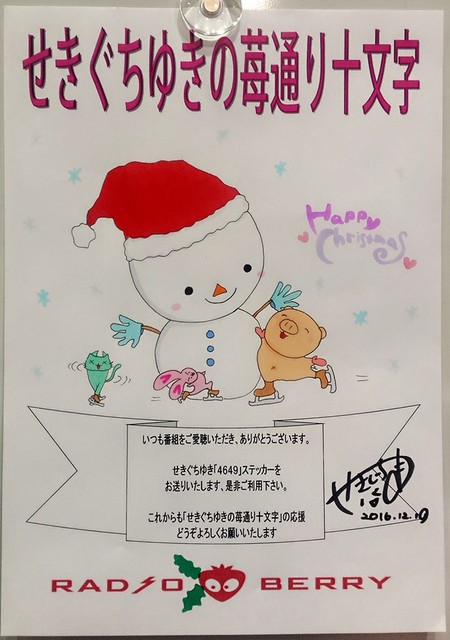 せきぐちゆきの苺通り十文字
Happy
Christmas
いつも番組をご愛聴いただき、ありがとうございます。
せきぐちゆき「4649」ステッカーを
お送りいたします、是非ご利用下さい。
これからも「せきぐちゆきの苺通り十文字」の応援
どうぞよろしくお願いいたします
せきぐちゆき
2016.12.19
RADIO BERRY